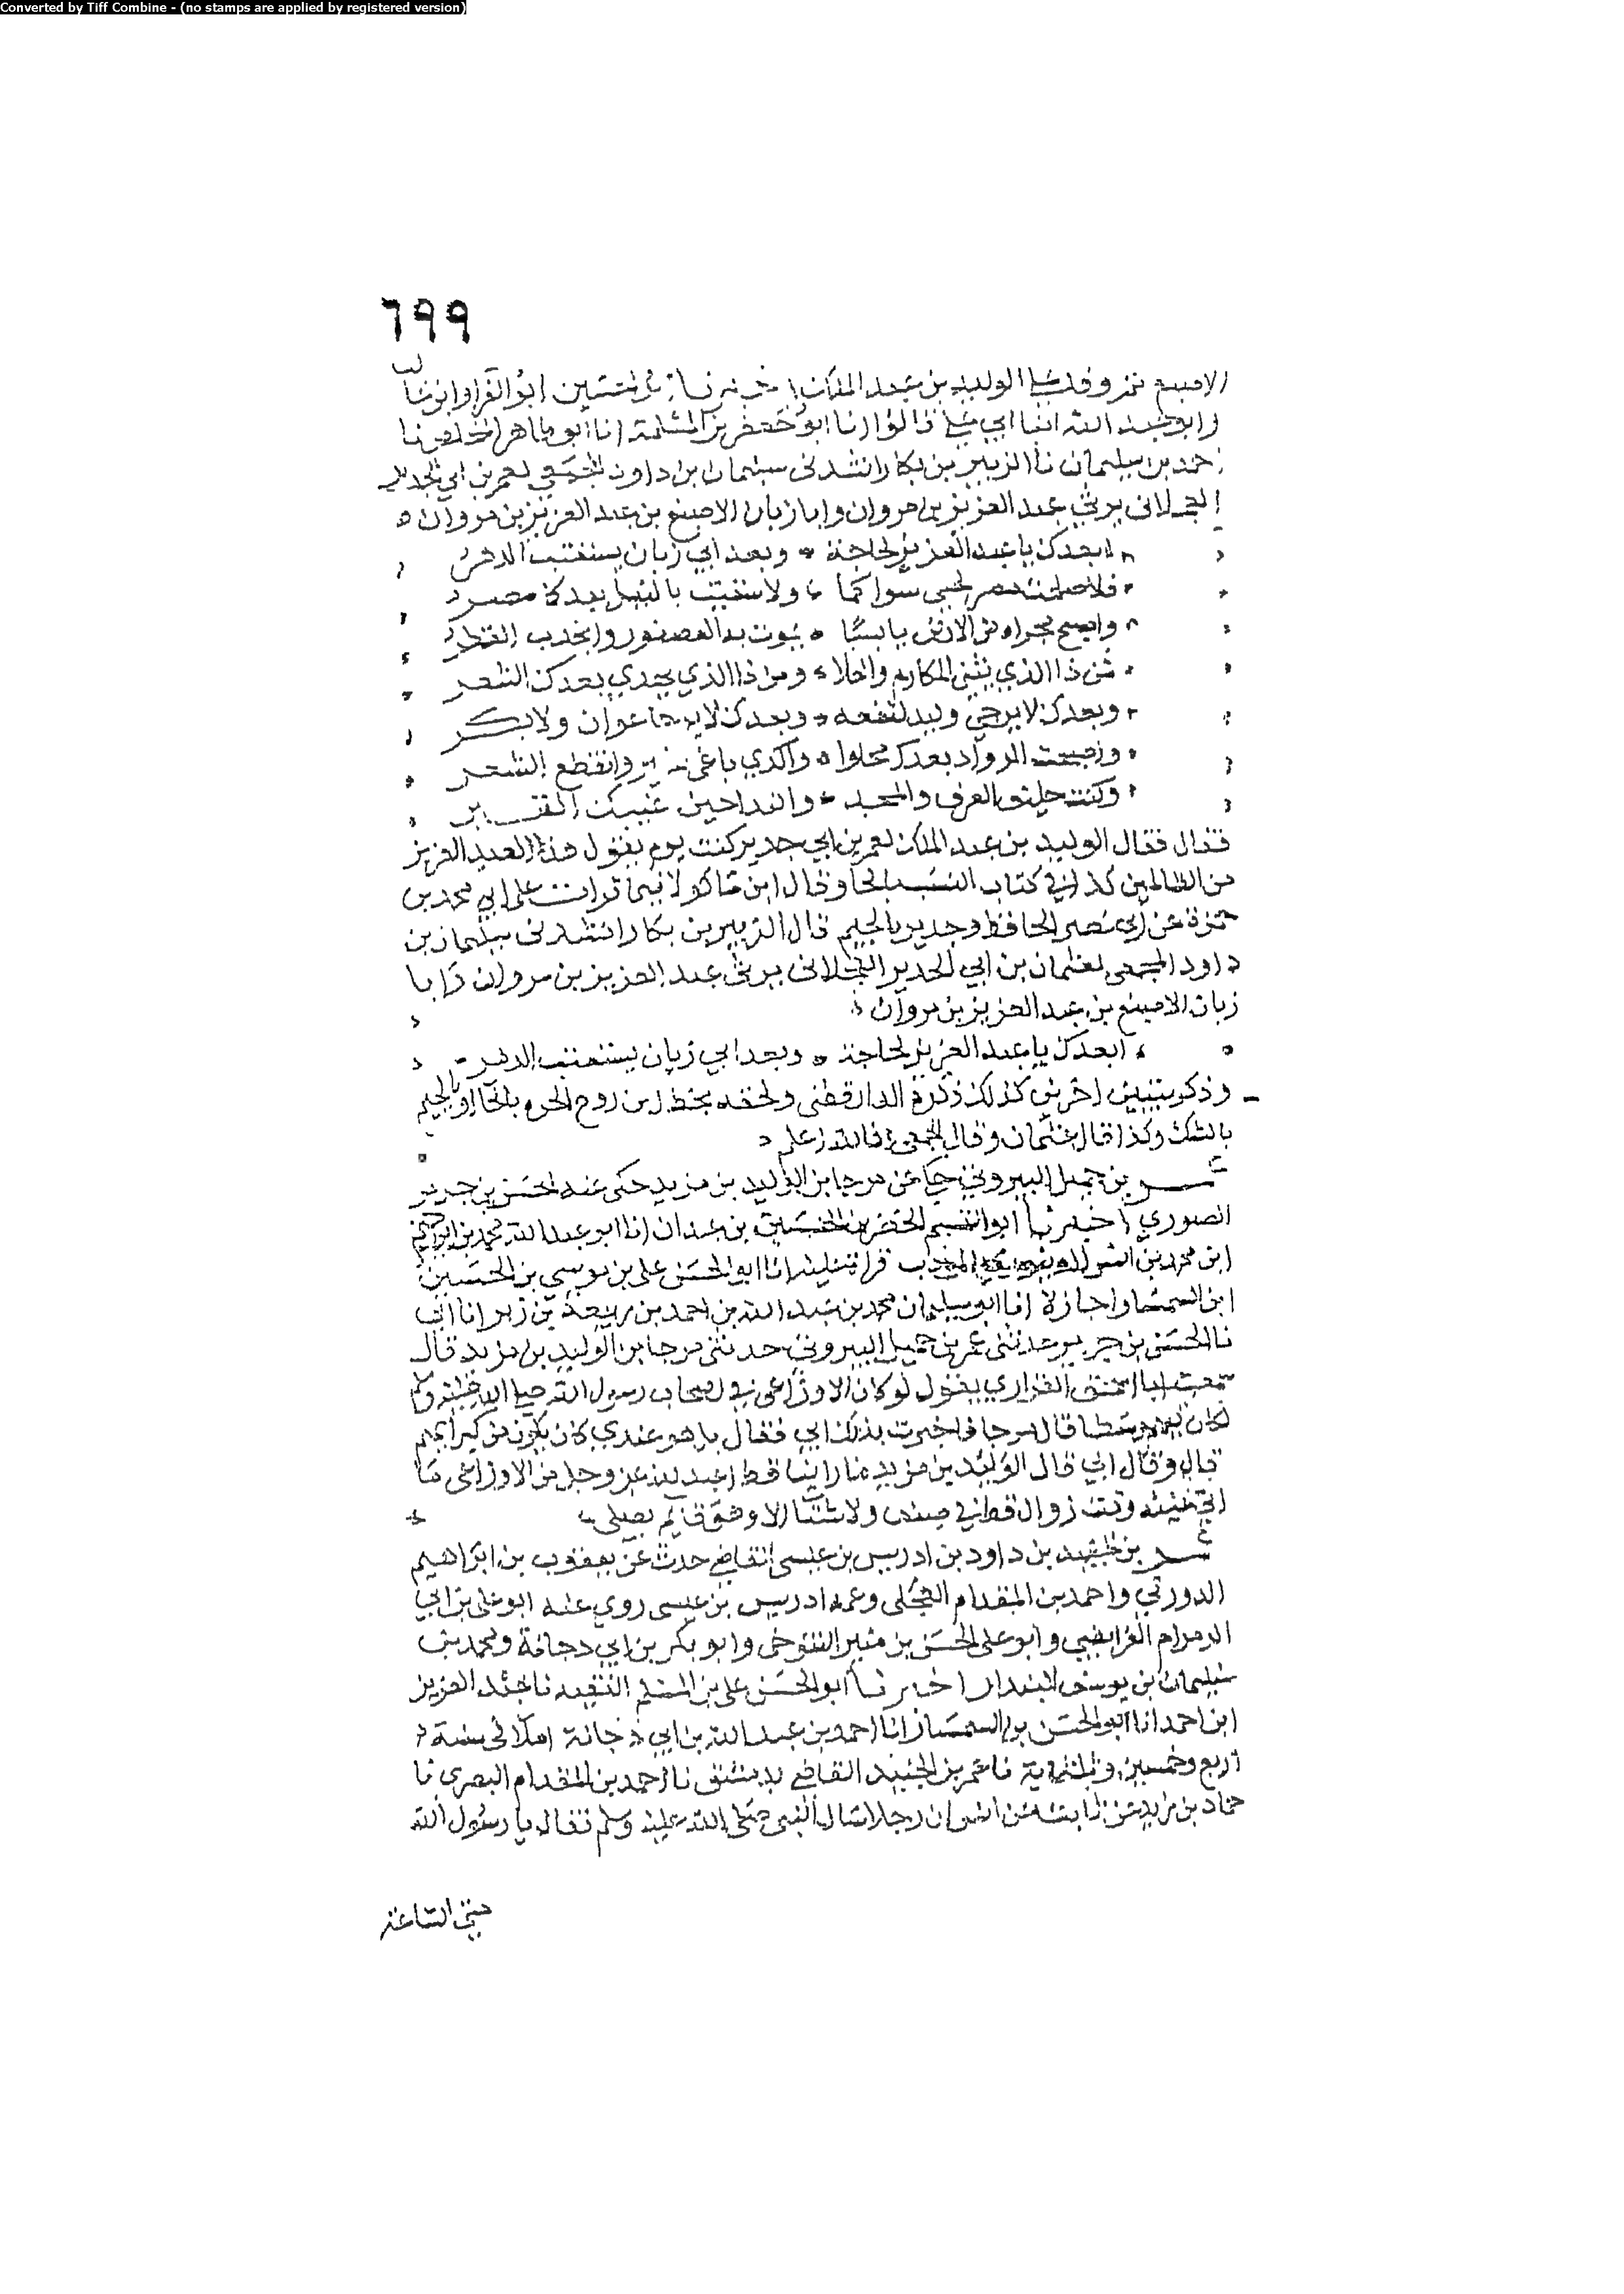 Converted by Tiff Combine - (no stamps are applied by registered version)
٦٩٩
الاصبغ ثم وفد على الوليد بن عبد الملك اخبرنا ابو الحسين ابو الفرا وابو غالب
وابو عبد الله ابنا ابي علي قالوا انا ابو جعفر بن المسلمة انا ابو طاهر المخلص نا
احمد بن سليمان نا الزبير بن بكار انشدني سليمان بن داود المجمعي لعمر بن ابي الجدير
العجلاني يرثي عبد العزيز بن مروان وابا زبان الاصبغ بن عبد العزيز بن مروان
ابعدك يا عبد العزيز لحاجة وبعد ابي زبان يستعتب الدهر
فلا صلحت مصر لحي سواكما ولا سقيت بالنيل بعدكما مصر
واصبح مجراه من الارض يابسا يموت به العصفور وانجدب القطر
فمن ذا الذي يبني المكارم والعلا ومن ذا الذي يهدي بعدك الشعر
وبعدك لا يرجى وليد لنفعه وبعدك لا يرجا عوان ولا بكر
واصبحت الرواد بعدك محلوا واكدي باغي وانقطع السفر
وكنت حليف العرف والمجد والندا حين غيبك القبر
قال فقال الوليد بن عبد الملك لعمر بن ابي جدير كنت يوم تقول هذا لعبد العزيز
من الظالمين كذا في كتاب النسب بالحا وقال ابن ماكولا فيما قرات على ابي محمد بن
حمزة عن ابي نصر الحافظ وجدير بالجيم قال الزبير بن بكار انشدني سليمان بن
داود المجمعي لعثمان بن ابي الجدير العجلاني يرثي عبد العزيز بن مروان وابا
زبان الاصبغ بن عبد العزيز بن مروان
ابعدك يا عبد العزيز لحاجة وبعد ابي زبان يستعتب الدهر
وذكر بيتين اخرين كذلك ذكره الدارقطني ولحقه بخط ابن روح الحرم بالحا او بالجيم
بالشك وكذا قال عثمان وقال المجمعي فالله اعلم
عمر بن جميل البيروتي حكا عن مرجا بن الوليد بن مزيد حكى عنه الحسن بن جرير
الصوري اخبرنا ابو القسم الخضر بن الحسين بن عبدان انا ابو عبد الله محمد بن ابراهيم
ابن محمد بن قراة عليه انا ابو الحسن علي بن موسى بن الحسين
ابن السمسار اجازة انا ابو سليمان محمد بن عبد الله بن احمد بن ربيعة بن زبر انا ابي
نا الحسن بن جرير حدثني عمر بن جميل البيروتي حدثني مرجا بن الوليد بن مزيد قال
سمعت ابا اسحق الفزاري يقول لو كان الاوزاعي في اصحاب رسول الله صلى الله عليه وسلم
لكان وسطا قال مرجا فاخبرت بذلك ابي فقال بل هو عندي كان يكون من كبرائهم
قال وقال ابي قال الوليد بن مزيد ما راينا قط اعبد لله عز وجل من الاوزاعي ما
اتي عليه وقت زوال قط في صيف ولا شتا الا وهو قائم يصلي
عمر بن الجنيد بن داود بن ادريس بن عيسى القاضي حدث عن يعقوب بن ابراهيم
الدورقي واحمد بن المقدام العجلي وعمه ادريس بن عيسى روى عنه ابو علي بن ابي
الرمرام الفرايضي وابو علي الحسن بن منير التنوخي وابو بكر بن ابي دجانة ومحمد بن
سليمان بن يوسف البندار اخبرنا ابو الحسن علي بن المسلم الفقيه نا عبد العزيز
ابن احمد انا ابو الحسن بن السمسار انا احمد بن عبد الله بن ابي دجانة املا في سنة
اربع وخمسين وثلثماية نا عمر بن الجنيد القاضي بدمشق نا احمد بن المقدام البصري نا
حماد بن زيد عن ثابت عن انس ان رجلا سال النبي صلى الله عليه وسلم فقال يا رسول الله
متى الساعة